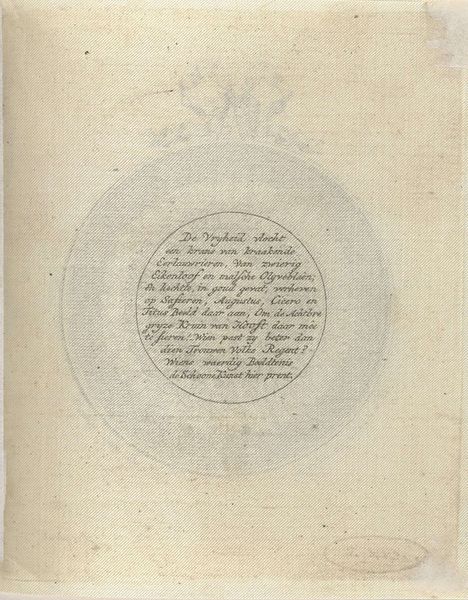 De Vryheid vlocht
een krans van kraakende
Eerlauwrieren, Van zwierig
Eikenloof en malsche Olyveblaên;
En hechtte, in goud gevat, verheven
op Safieren, Augustus, Cicero en
Titus Beeld daar aan; Om de Achtbre
gryze Kruin van Hooft daar mêe
te sieren!_Wien past zy beter dan
dien Trouwen Volks Regent?_
Wiens waerdig Beeldtenis
de Schoone Kunst hier prent.